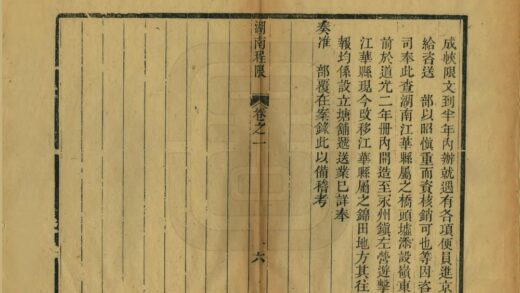 成帙限文到半年內辦就遇有各項便員進京
給咨送 部以昭慎重而資核銷可也等因咨
司奉此查湖南江華縣屬之橋頭墟添設嶺東
前於道光二年冊內開造至永州鎮左營遊擊
江華縣現今改移江華縣屬之錦田地方其往
報均係設立塘舖遞送業已詳奉
奏准 部覆在案錄此以備稽考
湖南程限 卷之一 六